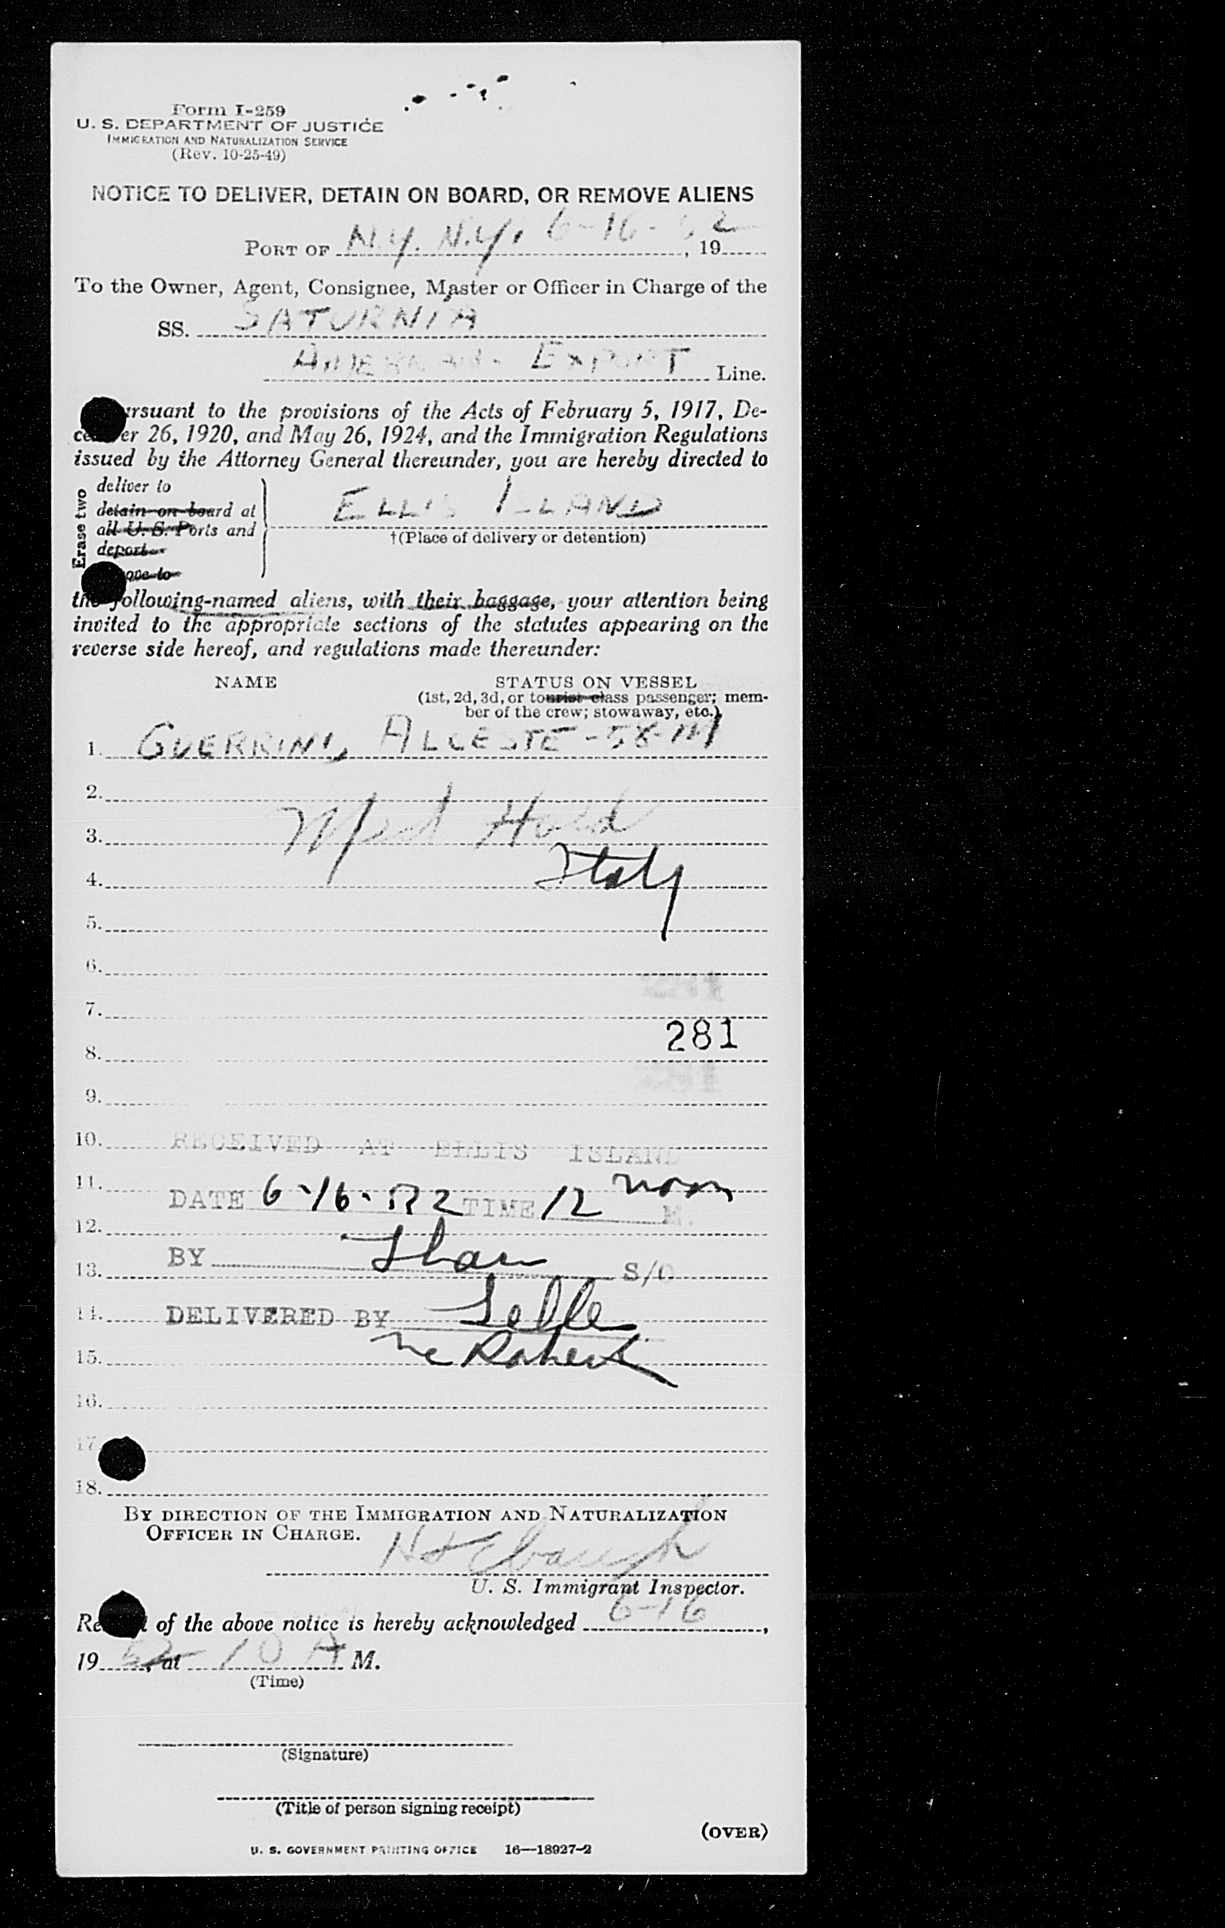 Form I-259
U. S. DEPARTMENT OF JUSTICE
IMMIGRATION AND NATURALIZATION SERVICE
(Rev. 10-25-49)
NOTICE TO DELIVER, DETAIN ON BOARD, OR REMOVE ALIENS
PORT OF N.Y. N.Y. 6-16-52, 19
To the Owner, Agent, Consignee, Master or Officer in Charge of the
SS. SATURNIA
AMERICAN EXPORT Line.
rsuant to the provisions of the Acts of February 5, 1917, De-
ce er 26, 1920, and May 26, 1924, and the Immigration Regulations
issued by the Attorney General thereunder, you are hereby directed to
Erase two
deliver to
detain on board at
all U. S. Ports and
deport
ove to
ELLIS ISLAND
†(Place of delivery or detention)
the following-named aliens, with their baggage, your attention being
invited to the appropriate sections of the statutes appearing on the
reverse side hereof, and regulations made thereunder:
NAME
STATUS ON VESSEL
(1st, 2d, 3d, or tourist class passenger; mem-
ber of the crew; stowaway, etc.)
1. GUERRINI, ALCESTE-58-M
2.
3. Med Hold
4. Italy
5.
6.
7.
281
8.
9.
10. RECEIVED AT ELLIS ISLAND
11. DATE 6-16-52 TIME 12 noon M.
12.
13. BY S/O
14. DELIVERED BY
15.
16.
17.
18.
BY DIRECTION OF THE IMMIGRATION AND NATURALIZATION
OFFICER IN CHARGE.
U. S. Immigrant Inspector.
Re t of the above notice is hereby acknowledged 6-16,
19 52, at 10 A M.
(Time)
(Signature)
(Title of person signing receipt)
(OVER)
U. S. GOVERNMENT PRINTING OFFICE 16—18927-2